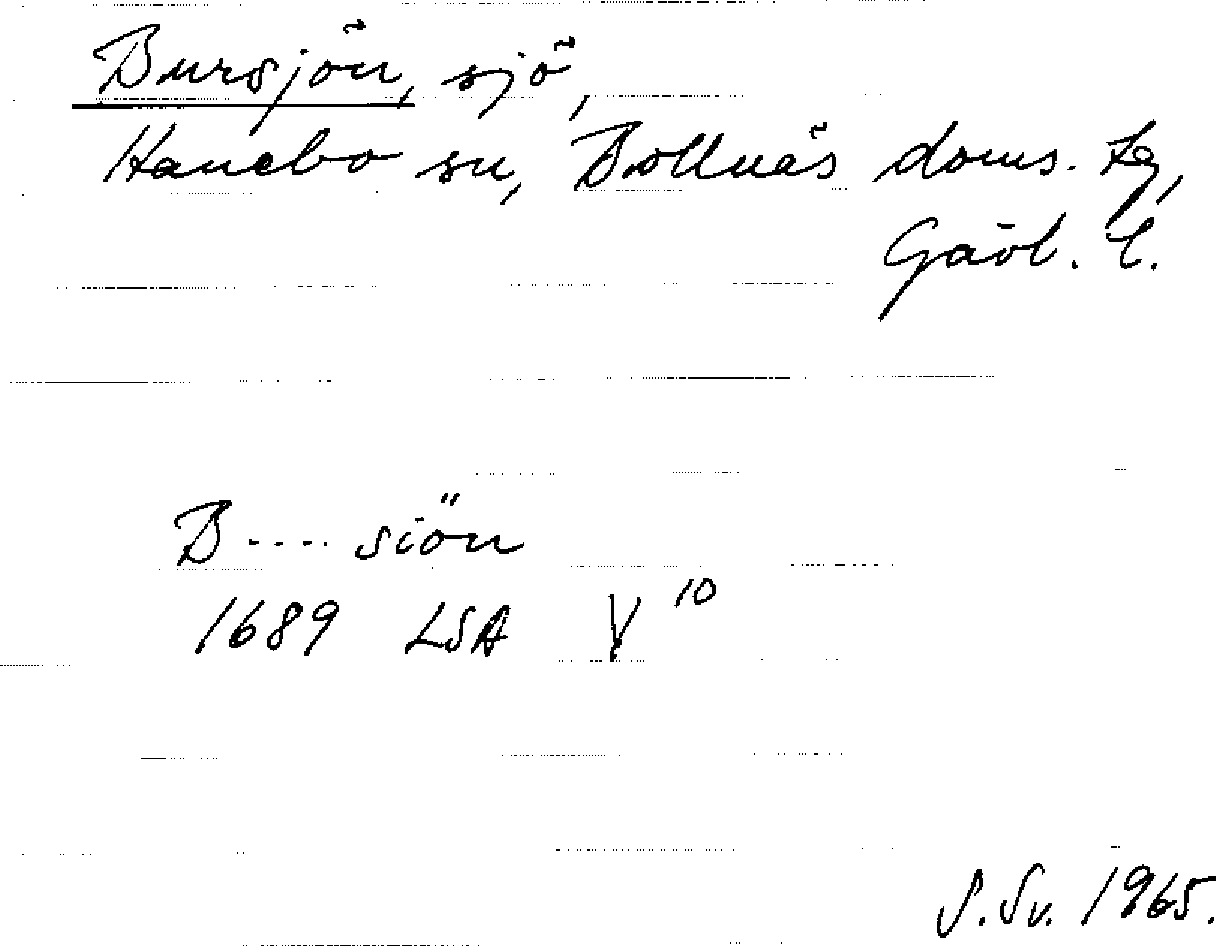 Bursjön, sjö,
Hanebo sn, Bollnäs doms. tg,
Gävl. l.
B---- siön
1689 LSA V 10
S. Sv. 1965.